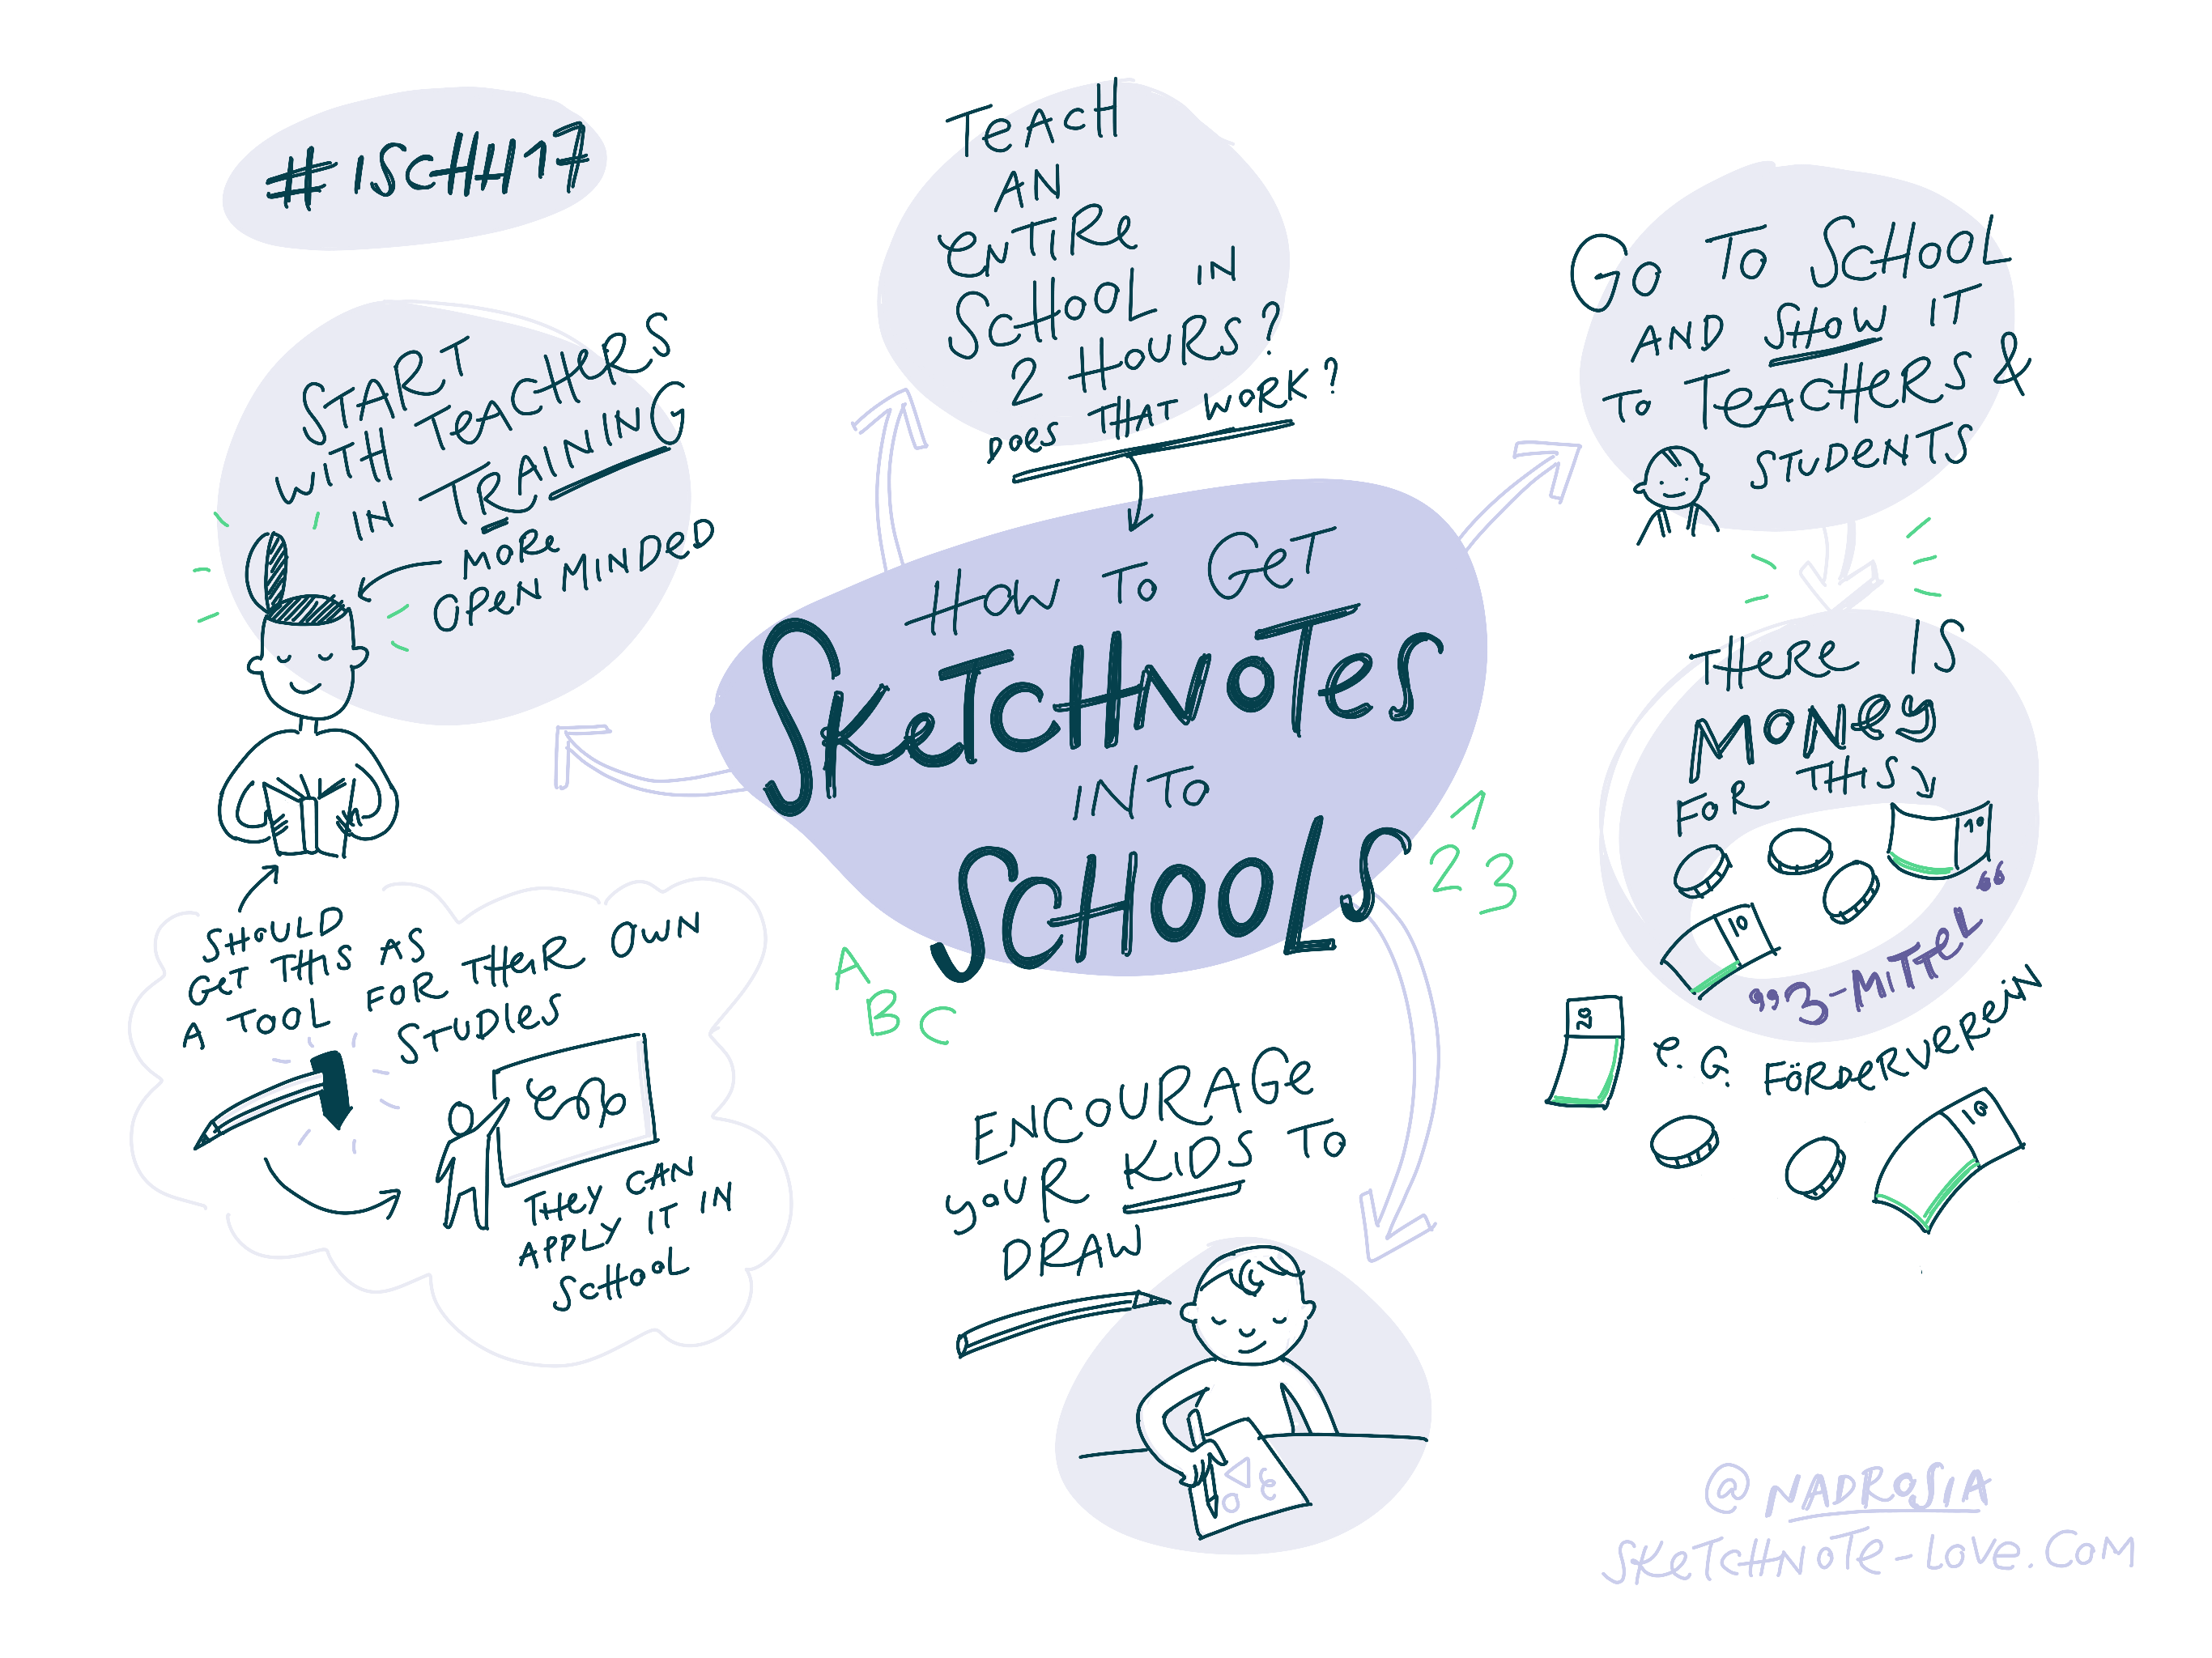 #ISCHH17
TEACH
AN
ENTIRE
SCHOOL IN
2 HOURS?
DOES THAT WORK?
GO TO SCHOOL
AND SHOW IT
TO TEACHERS &
STUDENTS
START
WITH TEACHERS
IN TRAINING
MORE
OPEN MINDED
HOW TO GET
SKETCHNOTES
INTO
SCHOOLS
1
2 3
A
B C
THERE IS
MONEY
FOR THIS
10
10
"3-MITTEL"
E.G. FÖRDERVEREIN
20
10
SHOULD
GET THIS AS
A TOOL FOR THEIR OWN
STUDIES
THEY CAN
APPLY IT IN
SCHOOL
ENCOURAGE
YOUR KIDS TO
DRAW
@NADROSIA
SKETCHNOTE-LOVE.COM